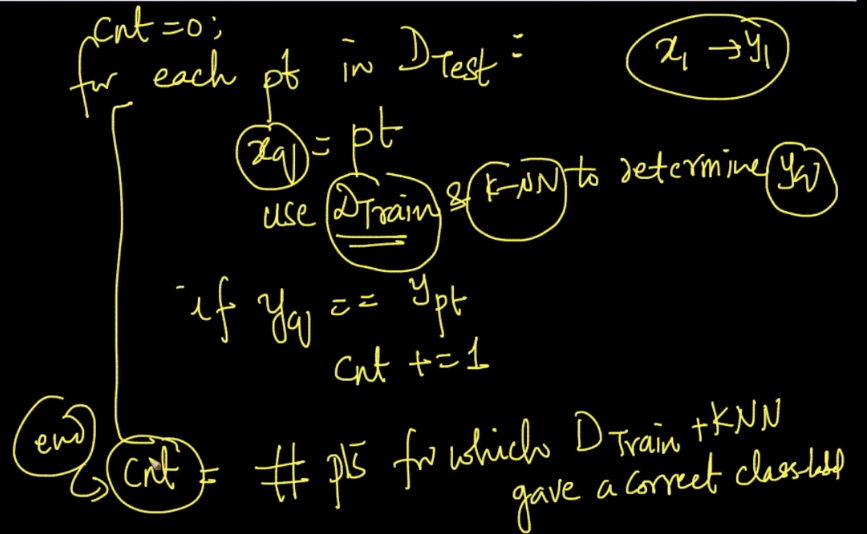 Cnt = 0;
for each pt in D Test :
x1 → y1
xq = pt
use DTrain & K-NN to determine yq
if yq == ypt
Cnt += 1
end
Cnt = # pts for which D Train + KNN
gave a correct class-label